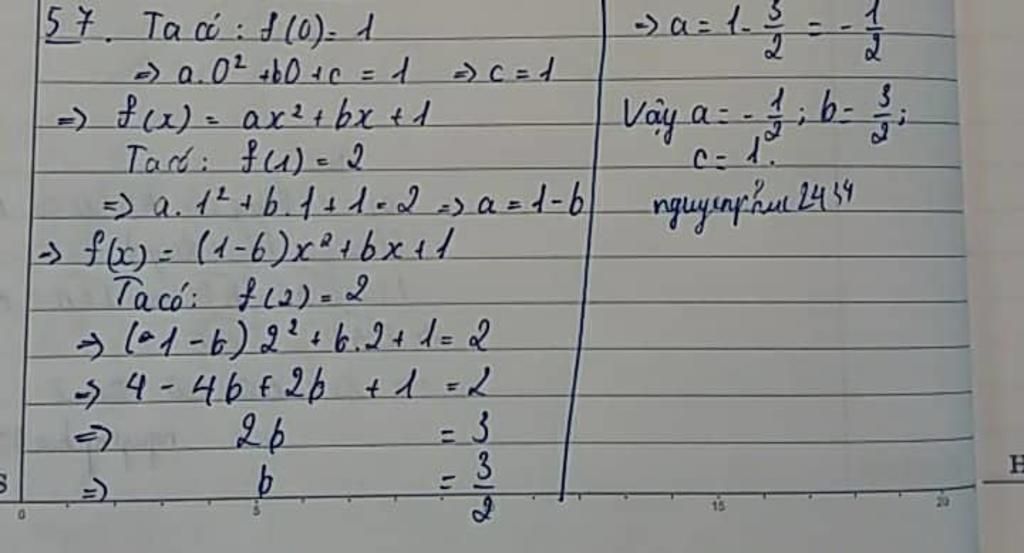 57. Ta có: f(0)= 1
=> a.0² + b0 + c = 1 => c = 1
=> f(x) = ax² + bx + 1
Ta có: f(1) = 2
=> a.1² + b.1 + 1 = 2 => a = 1-b
=> f(x) = (1-b)x² + bx + 1
Ta có: f(2) = 2
=> (1-b) 2² + b.2 + 1 = 2
=> 4 - 4b + 2b + 1 = 2
=> 2b = 3
=> b = 3/2
=> a = 1 - 3/2 = - 1/2
Vậy a = - 1/2; b = 3/2;
c = 1.
S
0 5 15 20
H